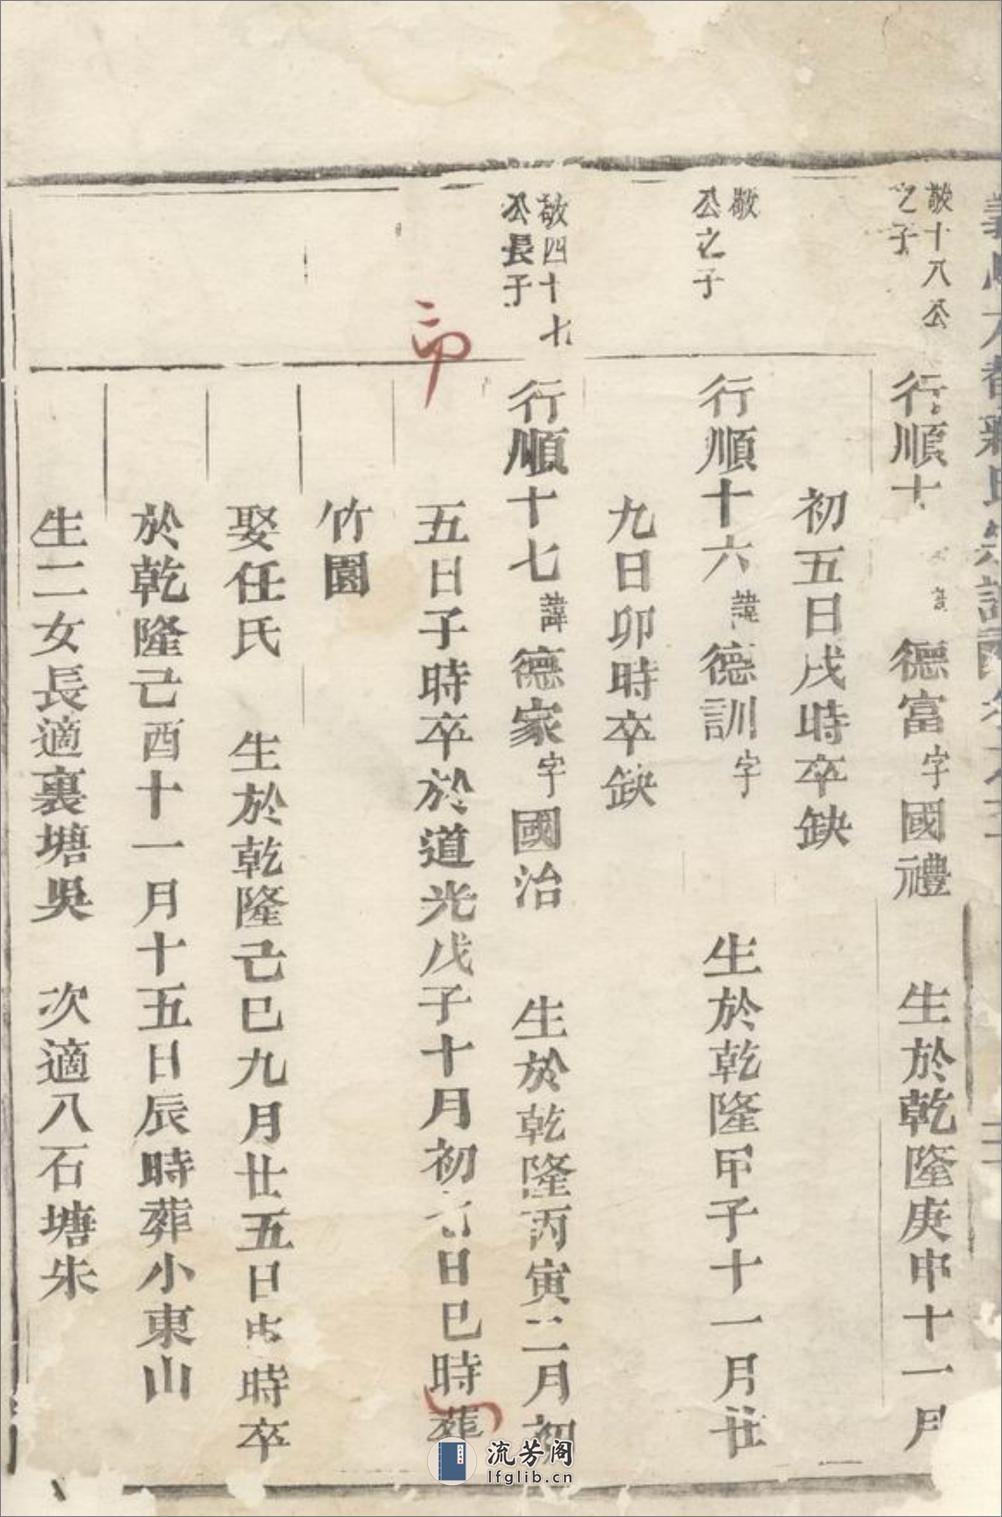 敬十八公
之子
行順十 德富字國禮 生於乾隆庚申十一月
初五日戌時卒缺
敬
公之子
行順十六諱德訓字 生於乾隆甲子十一月廿
九日卯時卒缺
敬四十七
公長子
行順十七諱德家字國治 生於乾隆丙寅二月初
五日子時卒於道光戊子十月初七日巳時葬
竹園
娶任氏 生於乾隆己巳九月廿五日 時卒
於乾隆己酉十一月十五日辰時葬小東山
生二女長適裏塘吳 次適八石塘朱
流芳阁
lfglib.cn